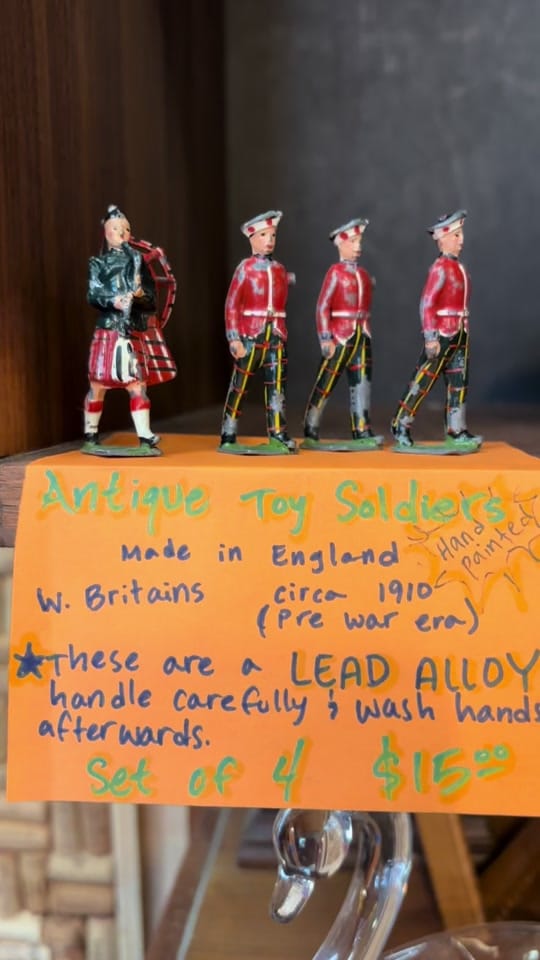 Antique Toy Soldiers
Hand
Painted
Made in England
W. Britains circa 1910
(Pre war era)
★These are a LEAD ALLOY
handle carefully & wash hands
afterwards.
Set of 4 $15.00